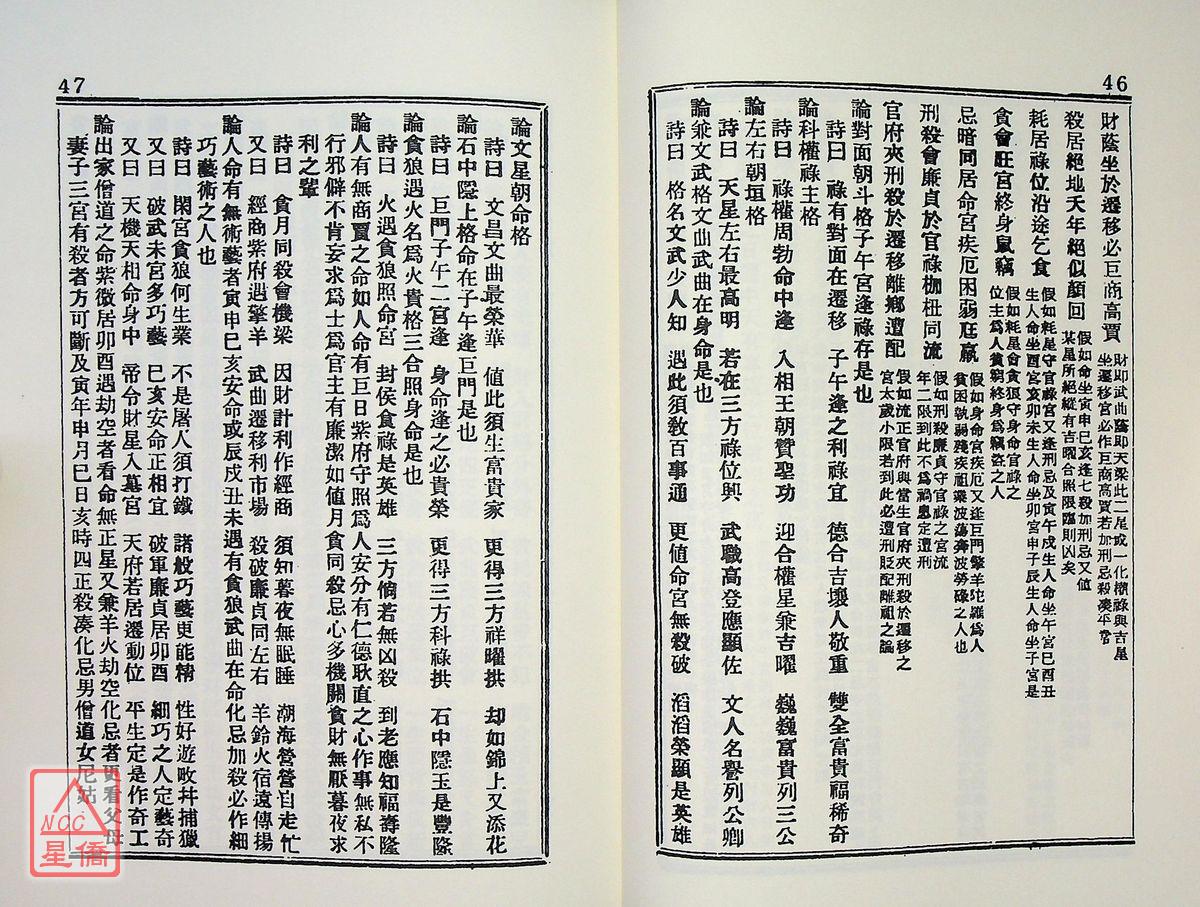 46
財蔭坐於遷移必巨商高賈
財即武曲蔭即天梁此二星或一化權祿與吉星
坐遷移宮必作巨商高賈若加刑忌殺湊平常
殺居絕地天年絕似顏回
假如命坐寅申巳亥逢七殺加刑忌又値
某星所絕縱有吉曜合照限臨則凶矣
耗居祿位沿途乞食
假如耗星守官祿宮又逢刑忌及寅午戌生人命坐午宮巳酉丑
生人命坐酉宮亥卯未生人命坐卯宮申子辰生人命坐子宮是
貪會旺宮終身鼠竊
假如耗星會貪狼守身命官祿之
位主爲人貧窮終身爲竊盜之人
忌暗同居命宮疾厄困弱尫羸
假如身命宮疾厄又逢巨門擎羊陀羅爲人
貧困執弱殘疾祖業波蕩奔波勞碌之人也
刑殺會廉貞於官祿枷杻同流
假如刑殺廉貞守官祿之宮流
年二限到此不爲禍患定遭刑
官府夾刑殺於遷移離鄉遭配
假如流正官府與當生官府夾刑殺於遷移之
宮太歲小限若到此必遭刑貶配離祖之論
論對面朝斗格子午宮逢祿存是也
詩曰　祿有對面在遷移　子午逢之利祿宜　德合吉壤人敬重　雙全富貴福稀奇
論科權祿主格
詩曰　祿權周勃命中逢　入相王朝贊聖功　迎合權星兼吉曜　巍巍富貴列三公
論左右朝垣格
詩曰　天星左右最高明　若在三方祿位興　武職高登應顯佐　文人名譽列公卿
論兼文武格文曲武曲在身命是也
詩曰　格名文武少人知　遇此須教百事通　更値命宮無殺破　滔滔榮顯是英雄
47
論文星朝命格
詩曰　文昌文曲最榮華　值此須生富貴家　更得三方祥曜拱　却如錦上又添花
論石中隱上格命在子午逢巨門是也
詩曰　巨門子午二宮逢　身命逢之必貴榮　更得三方科祿拱　石中隱玉是豐隆
論貪狼遇火名爲火貴格三合照身命是也
詩曰　火遇貪狼照命宮　封侯食祿是英雄　三方倘若無凶殺　到老應知福壽隆
論人有無商賈之命如人命有巨日紫府守照爲人安分有仁德耿直之心作事無私不
行邪僻不肯妄求爲士爲官主有廉潔如値月貪同殺忌心多機關貪財無厭暮夜求
利之輩
詩曰　貪月同殺會機梁　因財計利作經商　須知暮夜無眠睡　潮海營營自走忙
又曰　經商紫府遇擎羊　武曲遷移利市場　殺破廉貞同左右　羊鈴火宿遠傳揚
論人命有無術藝者寅申巳亥安命或辰戌丑未遇有貪狼武曲在命化忌加殺必作細
巧藝術之人也
詩曰　閑宮貪狼何生業　不是屠人須打鐵　諸般巧藝更能精　性好遊畋幷捕獵
又曰　破武未宮多巧藝　巳亥安命正相宜　破軍廉貞居卯酉　細巧之人定藝奇
又曰　天機天相命身中　帝令財星入墓宮　天府若居遷動位　平生定是作奇工
論出家僧道之命紫微居卯酉遇劫空者看命無正星又兼羊火劫空化忌者更看父母
妻子三宮有殺者方可斷及寅年申月巳日亥時四正殺湊化忌男僧道女尼姑
NCC
星僑